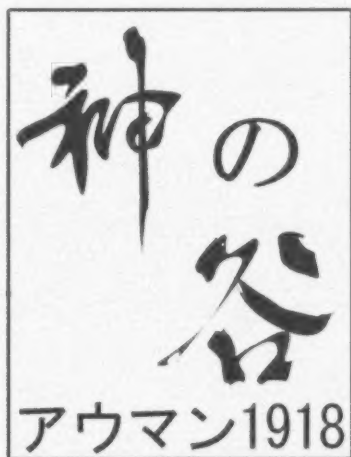 神の谷
アウマン1918